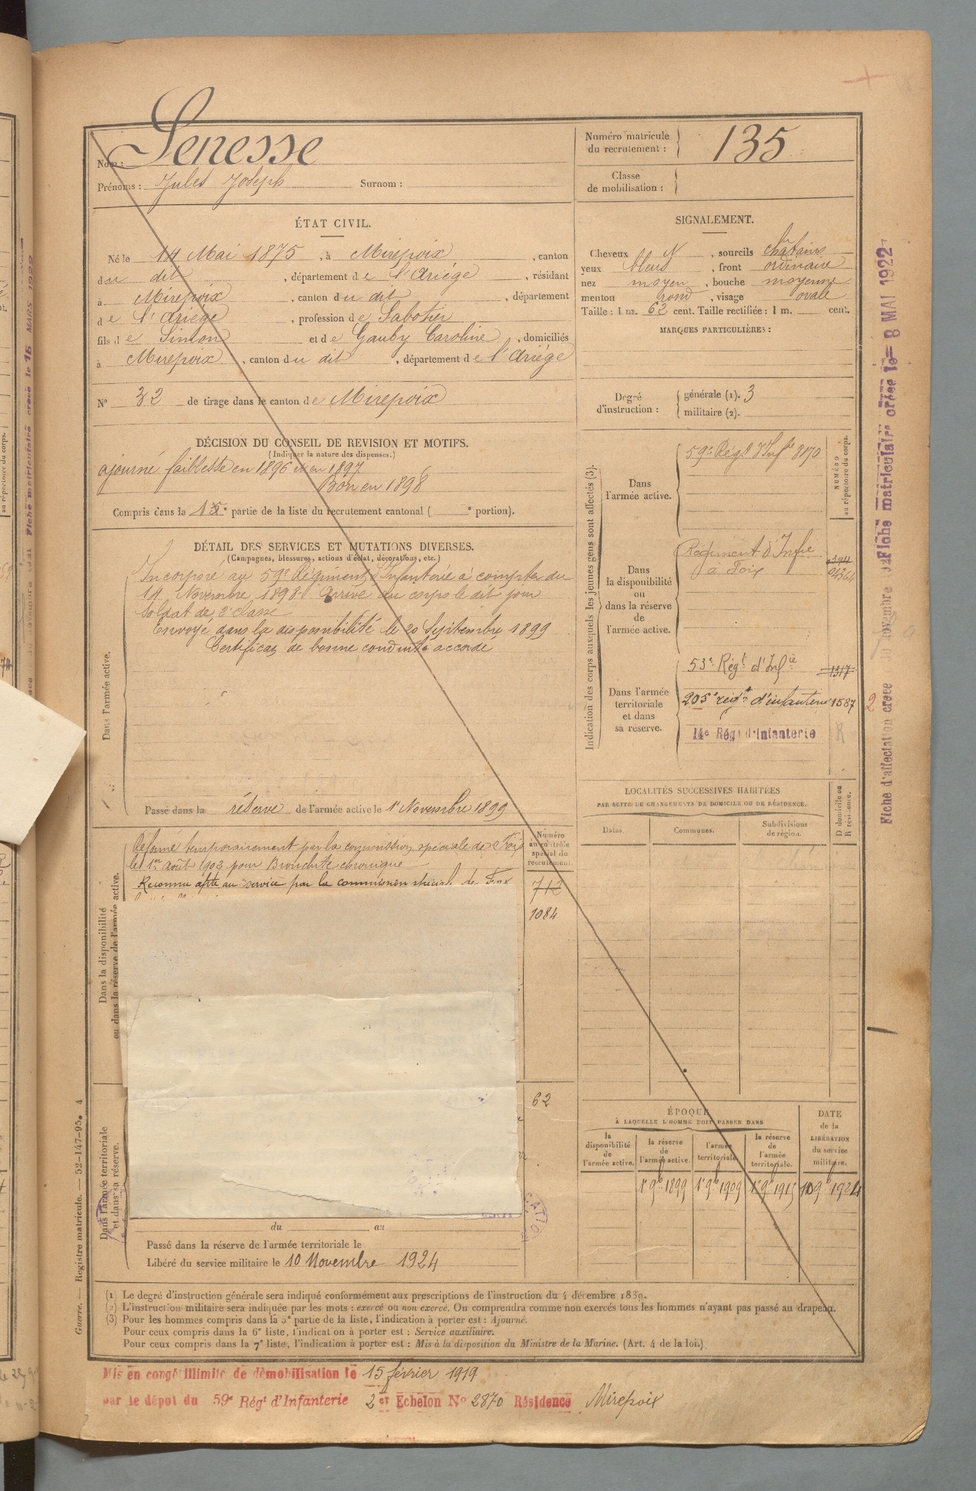 Nom : Senesse
Prénoms : Jules Joseph Surnom :
Numéro matricule du recrutement : 135
Classe de mobilisation :
ÉTAT CIVIL.
Né le 14 Mai 1875, à Mirepoix, canton
du dit, département de l'Ariège, résidant
à Mirepoix, canton du dit, département
de l'Ariège, profession de Sabotier
fils de Siméon et de Gauby Caroline, domiciliés
à Mirepoix, canton du dit, département de l'Ariège
N° 32 de tirage dans le canton de Mirepoix
SIGNALEMENT.
Cheveux N, sourcils châtains
yeux bleus, front ordinaire
nez moyen, bouche moyenne
menton rond, visage ovale
Taille : 1 m. 62 cent. Taille rectifiée : 1 m. cent.
MARQUES PARTICULIÈRES :
Degré d'instruction : générale (1). 3
militaire (2).
DÉCISION DU CONSEIL DE REVISION ET MOTIFS.
(Indiquer la nature des dispenses.)
ajourné faiblesse en 1896 et en 1897
Bon en 1898
Compris dans la 1re partie de la liste du recrutement cantonal ( e portion).
DÉTAIL DES SERVICES ET MUTATIONS DIVERSES.
(Campagnes, blessures, actions d'éclat, décorations, etc.)
Dans l'armée active.
Incorporé au 59e Régiment d'Infanterie à compter du
14 Novembre 1898. Arrivé au corps le dit jour
Soldat de 2e classe
Envoyé dans la disponibilité le 20 Septembre 1899
Certificat de bonne conduite accordé
Passé dans la réserve de l'armée active le 1er Novembre 1899
Dans la disponibilité ou dans la réserve de l'armée active.
Réformé temporairement par la commission spéciale de Foix
le 1er août 1903 pour Bronchite chronique
Reconnu apte au service par la commission spéciale de Foix
Numéro au contrôle spécial du recrutement.
712
1084
62
Dans l'armée territoriale et dans sa réserve.
du au
Passé dans la réserve de l'armée territoriale le
Libéré du service militaire le 10 Novembre 1924
Indication des corps auxquels les jeunes gens sont affectés (3).
NUMÉRO au répertoire du corps.
Dans l'armée active.
59e Régt d'Infie 8170
Dans la disponibilité ou dans la réserve de l'armée active.
Régiment d'Infie
à Foix
Dans l'armée territoriale et dans sa réserve.
53e Régt d'Infie 1317
205e régt d'infanterie 1587
14e Régt d'Infanterie R
LOCALITÉS SUCCESSIVES HABITÉES
PAR SUITE DE CHANGEMENTS DE DOMICILE OU DE RÉSIDENCE.
Dates. Communes. Subdivisions de région. D domicile ou R résidence.
ÉPOQUE
À LAQUELLE L'HOMME DOIT PASSER DANS
la disponibilité de l'armée active.
la réserve de l'armée active.
l'armée territoriale.
la réserve de l'armée territoriale.
DATE de la LIBÉRATION du service militaire.
1er 9bre 1899 1er 9bre 1909 1er 9bre 1915 10 9bre 1924
(1) Le degré d'instruction générale sera indiqué conformément aux prescriptions de l'instruction du 4 décembre 1889.
(2) L'instruction militaire sera indiquée par les mots : exercé ou non exercé. On comprendra comme non exercés tous les hommes n'ayant pas passé au drapeau.
(3) Pour les hommes compris dans la 5e partie de la liste, l'indication à porter est : Ajourné.
Pour ceux compris dans la 6e liste, l'indication à porter est : Service auxiliaire.
Pour ceux compris dans la 7e liste, l'indication à porter est : Mis à la disposition du Ministre de la Marine. (Art. 4 de la loi.)
Mis en congé illimité de démobilisation le 15 février 1919
par le dépôt du 59e Régt d'Infanterie 2 et Echelon No 2870 Résidence Mirepoix
Guerre. — Registre matricule. — 52-147-95. 4
Fiche matriculaire créée le 8 MAI 1922
Fiche d'affectation créée